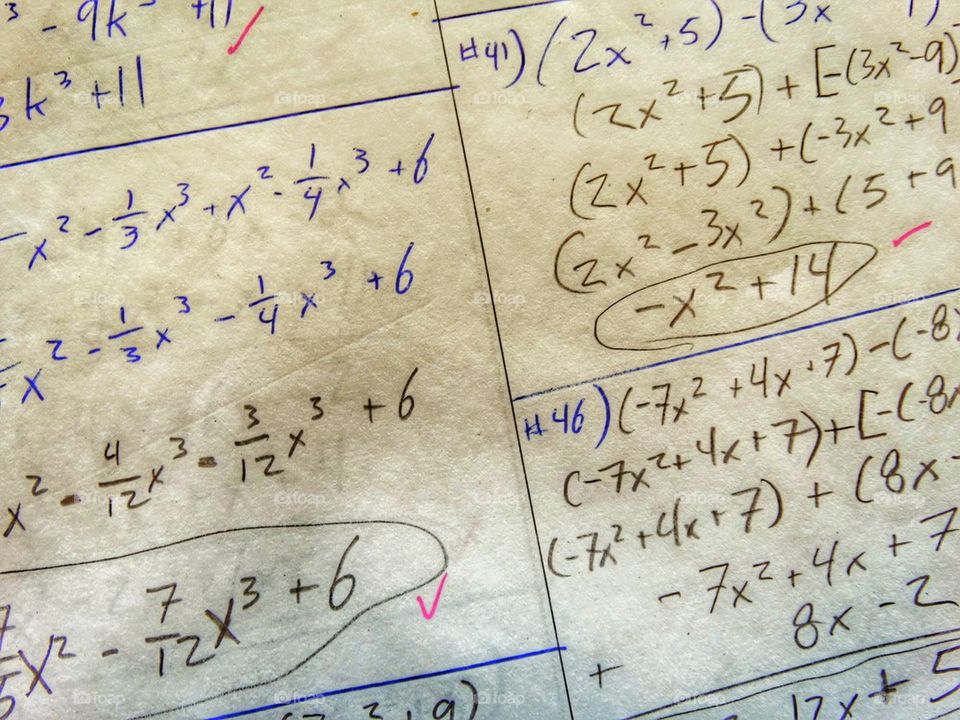 ³ - 9k³ +11
3k³ +11
x² - 1/3 x³ + x² - 1/4 x³ + 6
x² - 1/3 x³ - 1/4 x³ + 6
x² - 4/12 x³ - 3/12 x³ + 6
7/5 x² - 7/12 x³ + 6
#41) (2x² + 5) - (3x
(2x² + 5) + [-(3x² - 9)
(2x² + 5) + (-3x² + 9
(2x² - 3x²) + (5 + 9
-x² + 14
#46) (-7x² + 4x + 7) - (-8x
(-7x² + 4x + 7) + [-(-8x
(-7x² + 4x + 7) + (8x -
-7x² + 4x + 7
+ 8x - 2
12x + 5